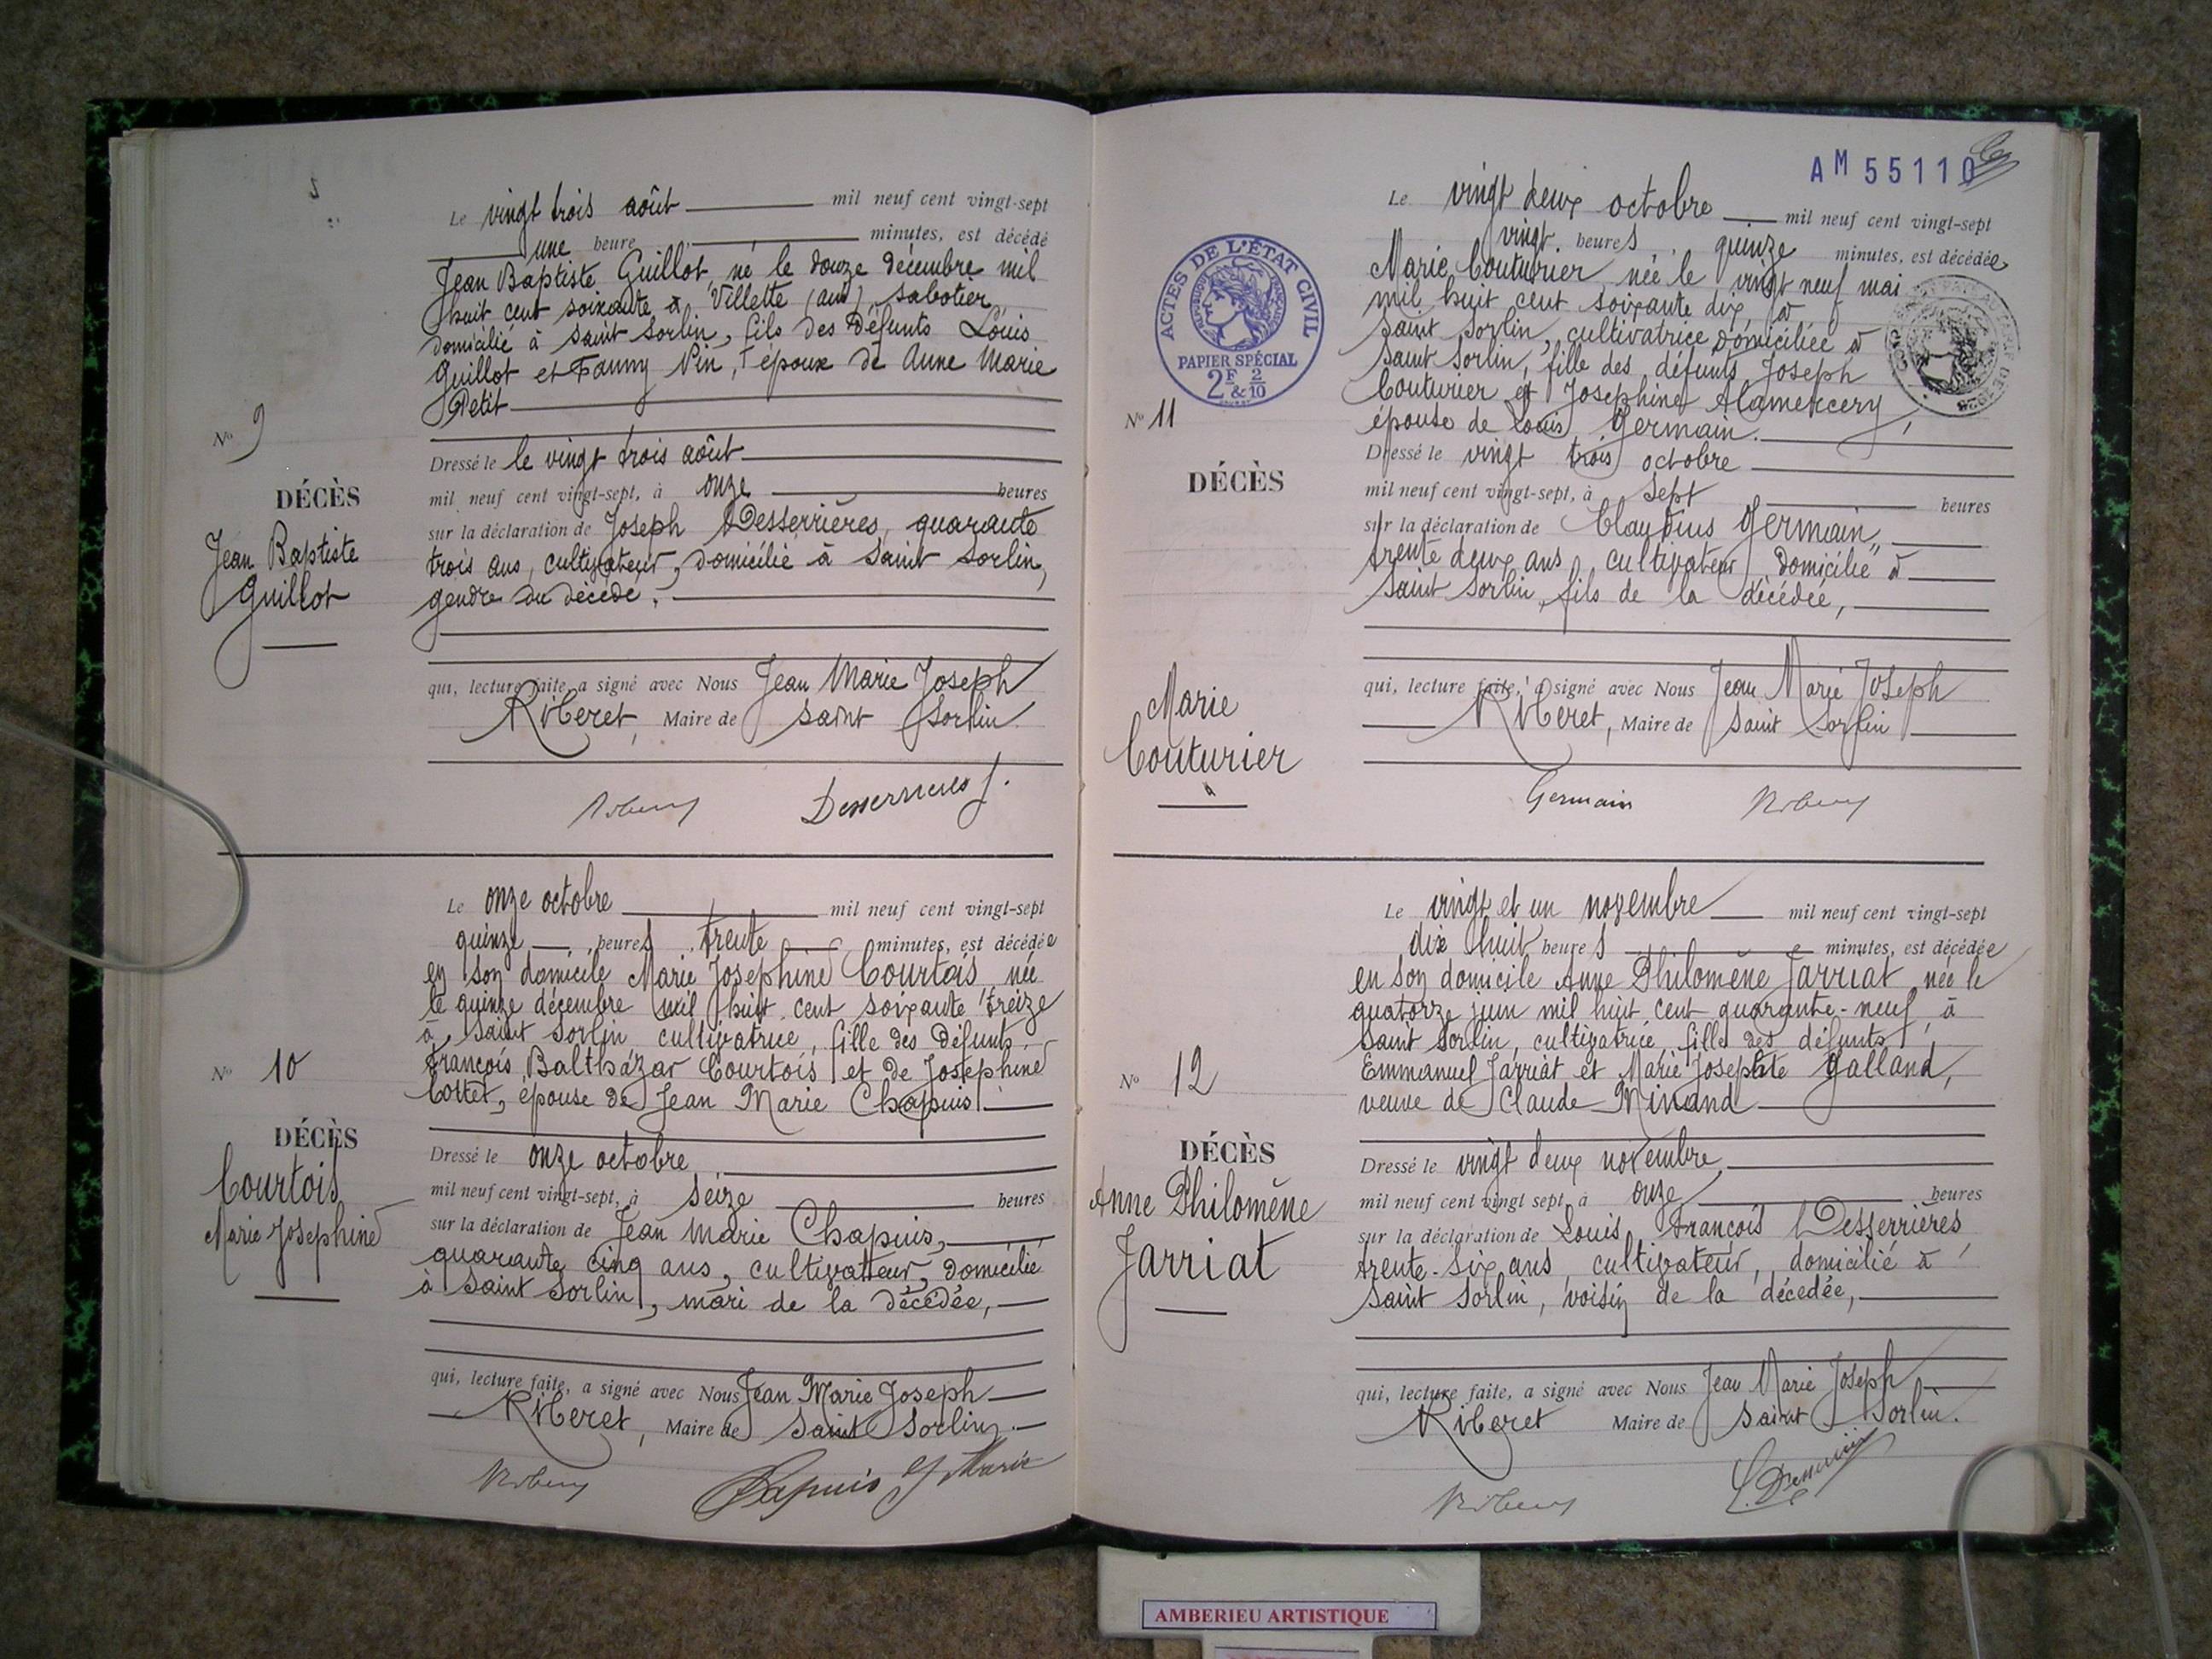 Le vingt trois août mil neuf cent vingt-sept
une heure minutes, est décédé
Jean Baptiste Guillot, né le douze décembre mil
huit cent soixante à Villette (ain), sabotier,
domicilié à Saint Sorlin, fils des défunts Louis
Guillot et Fanny Pin, époux de Anne Marie
Petit
N° 9
Dressé le le vingt trois août
DÉCÈS
mil neuf cent vingt-sept, à onze heures
Jean Baptiste
Guillot
sur la déclaration de Joseph Desserrières, quarante
trois ans, cultivateur, domicilié à Saint Sorlin,
gendre du décédé,
qui, lecture faite, a signé avec Nous Jean Marie Joseph
Riberet, Maire de Saint Sorlin
Desserrieres J.
Le onze octobre mil neuf cent vingt-sept
quinze heures trente minutes, est décédée
en son domicile Marie Josephine Courtois née
le quinze décembre mil huit cent soixante treize
à Saint Sorlin cultivatrice, fille des défunts
François Baltházar Courtois et de Josephine
Cottet, épouse de Jean Marie Chapuis
N° 10
DÉCÈS
Courtois
Marie Josephine
Dressé le onze octobre
mil neuf cent vingt-sept, à seize heures
sur la déclaration de Jean Marie Chapuis,
quarante cinq ans, cultivateur, domicilié
à Saint Sorlin, mari de la décédée,
qui, lecture faite, a signé avec Nous Jean Marie Joseph
Riberet, Maire de Saint Sorlin
Chapuis J Marie
AM 55110
Le vingt deux octobre mil neuf cent vingt-sept
vingt heures quinze minutes, est décédée
Marie Couturier, née le vingt neuf mai
mil huit cent soixante dix, à
Saint Sorlin, cultivatrice domiciliée à
Saint Sorlin, fille des défunts Joseph
Couturier et Josephine Alamercery,
épouse de Louis Germain.
ACTES DE L'ÉTAT CIVIL
RÉPUBLIQUE FRANÇAISE
PAPIER SPÉCIAL
2F & 2/10
N° 11
DÉCÈS
Marie
Couturier
Dressé le vingt trois octobre
mil neuf cent vingt-sept, à sept heures
sur la déclaration de Claudius Germain,
trente deux ans, cultivateur, domicilié à
Saint Sorlin, fils de la décédée,
qui, lecture faite, a signé avec Nous Jean Marie Joseph
Riberet, Maire de Saint Sorlin
Germain
Le vingt et un novembre mil neuf cent vingt-sept
dix huit heures minutes, est décédée
en son domicile Anne Philomène Jarriat née le
quatorze juin mil huit cent quarante-neuf, à
Saint Sorlin, cultivatrice, fille des défunts
Emmanuel Jarriat et Marie Josephte Galland,
veuve de Claude Minand
N° 12
DÉCÈS
Anne Philomène
Jarriat
Dressé le vingt deux novembre,
mil neuf cent vingt sept, à onze heures
sur la déclaration de Louis François Desserrières
trente-six ans, cultivateur, domicilié à
Saint Sorlin, voisin de la décédée,
qui, lecture faite, a signé avec Nous Jean Marie Joseph
Riberet Maire de Saint Sorlin.
AMBERIEU ARTISTIQUE